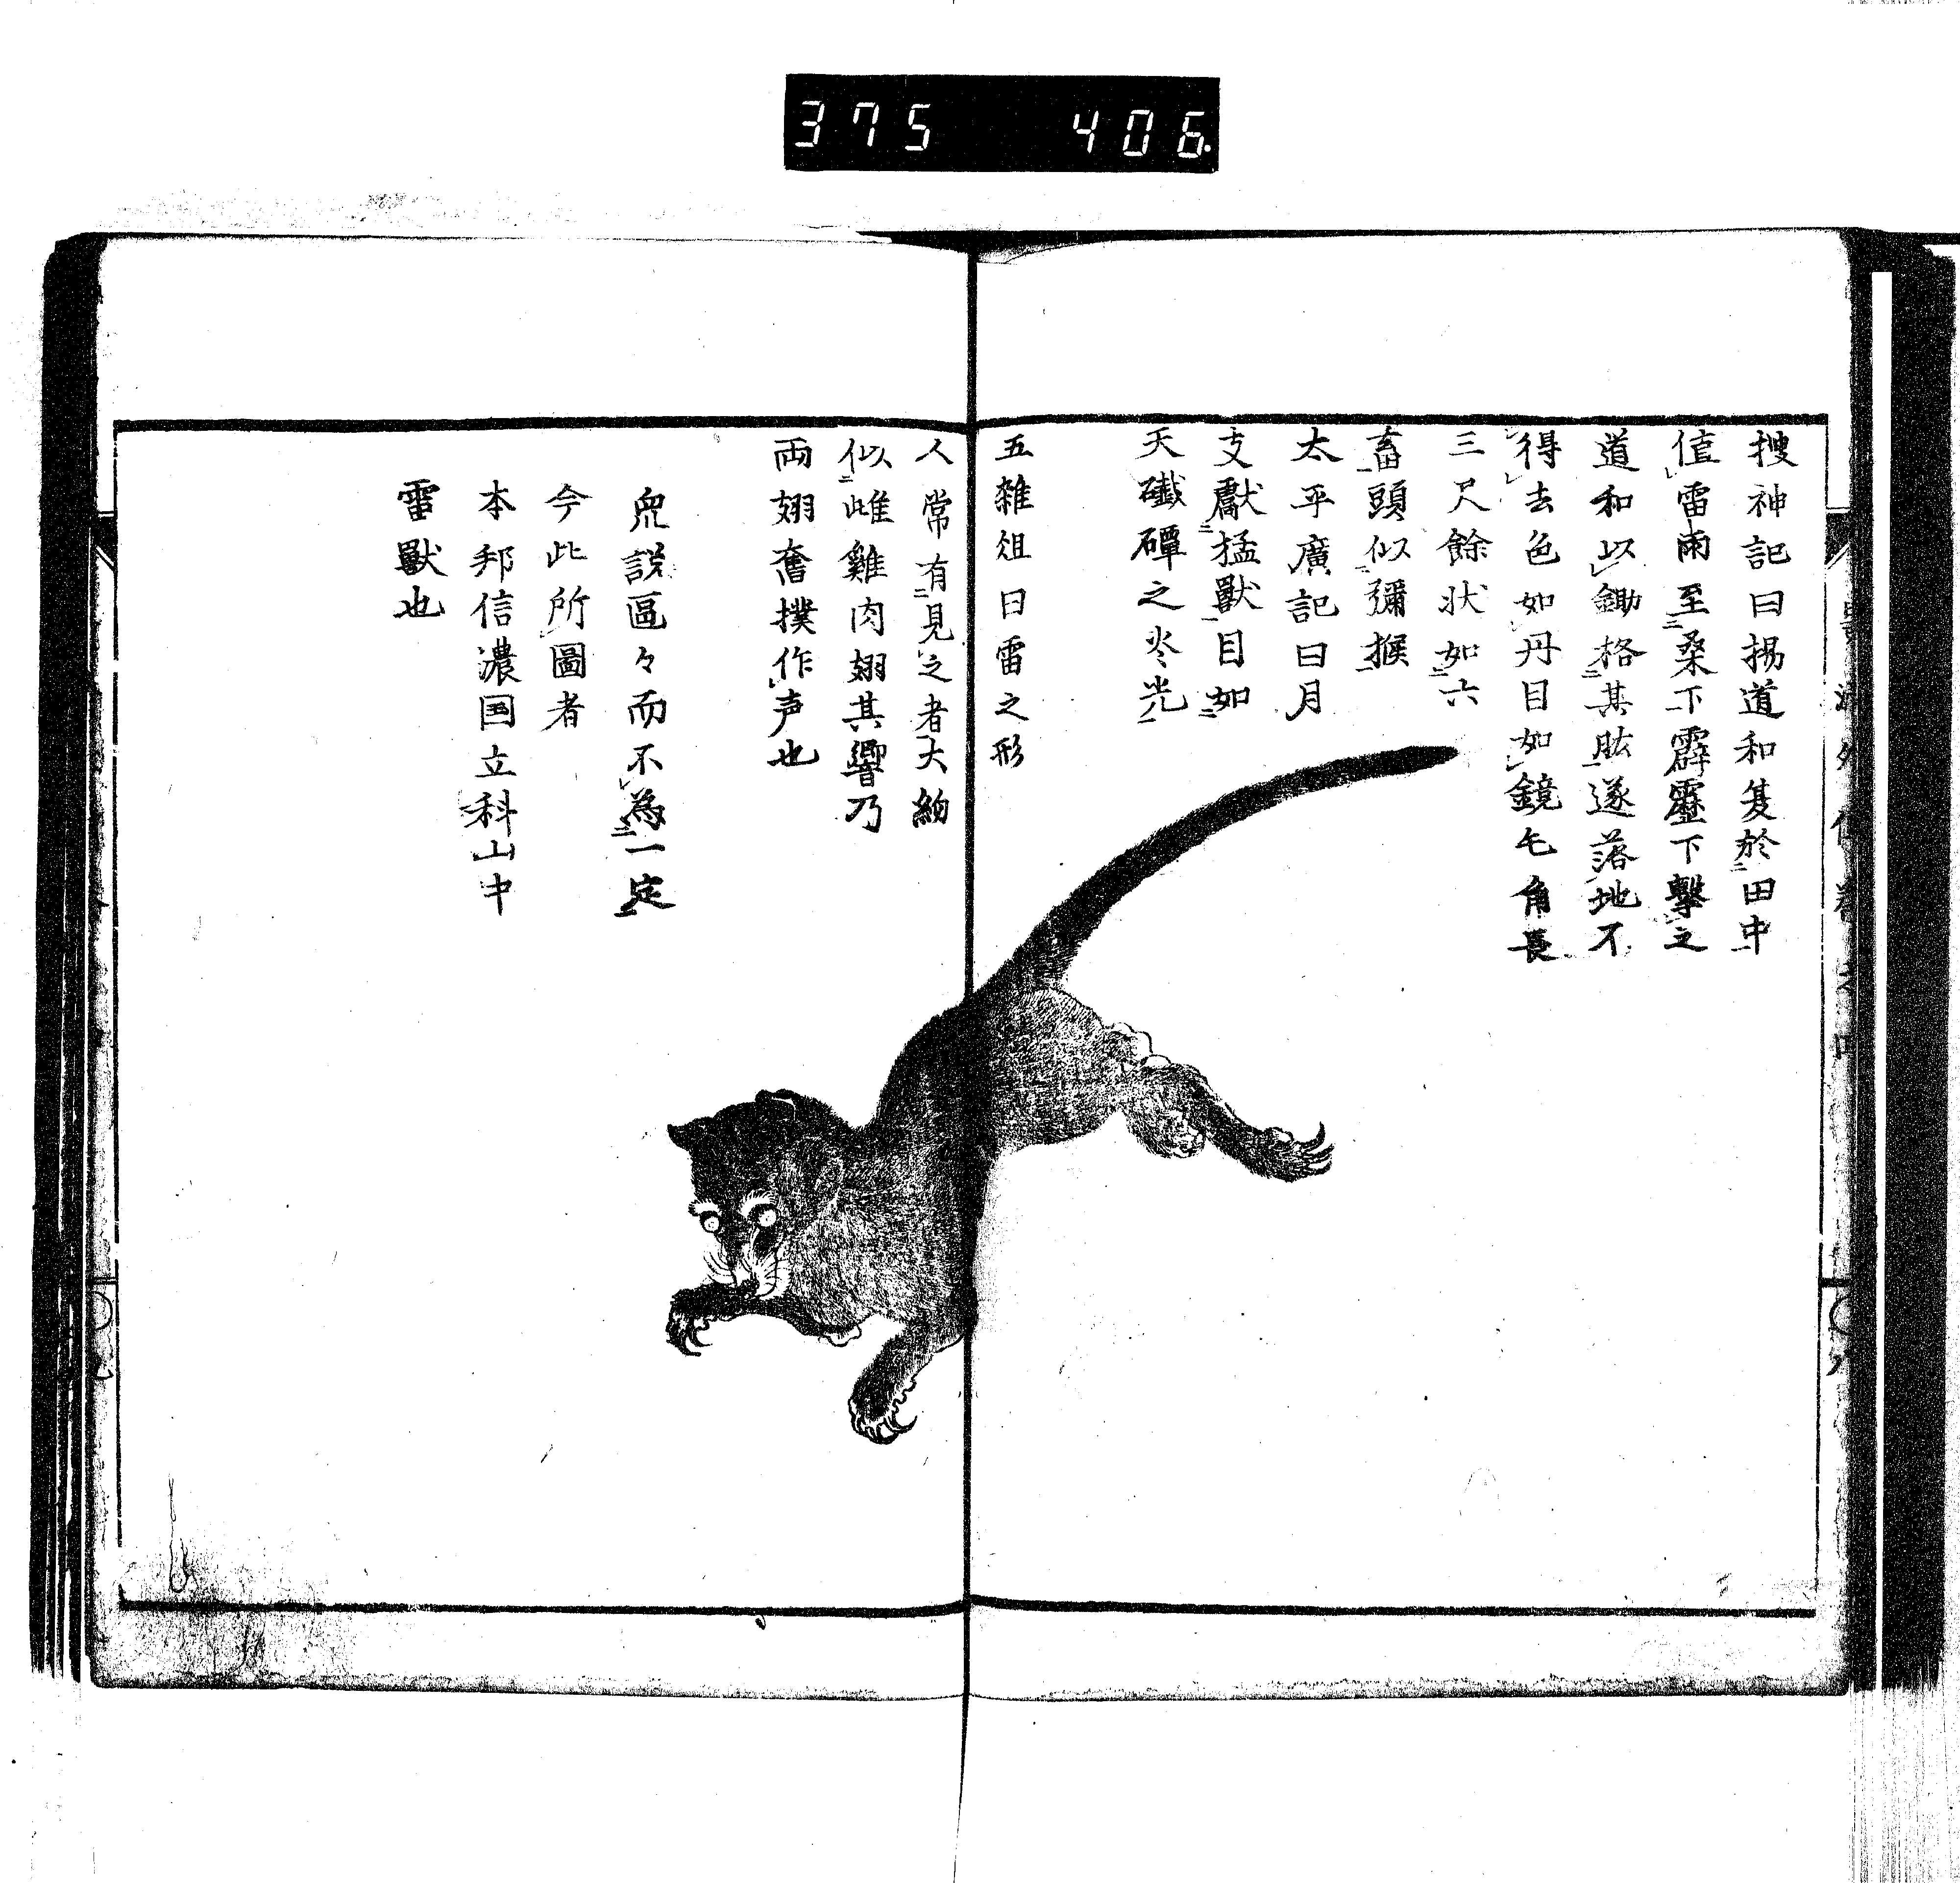 375 406
搜神記曰揚道和夏於田中
值雷雨至桑下霹靂下擊之
道和以鋤格其肱遂落地不
得去色如丹目如鏡毛角長
三尺餘状如六
畜頭似獼猴
太平廣記曰月
支獻猛獸目如
天礒磹之炎光
五雜俎曰雷之形
人常有見之者大約
似雌雞肉翅其響乃
両翅奮撲作声也
衆説區々而不為一定
今此所圖者
本邦信濃国立科山中
雷獸也